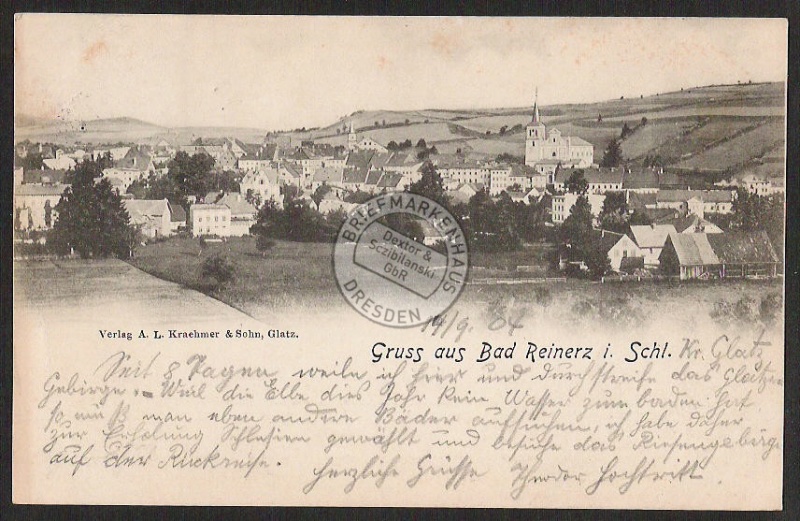 BRIEFMARKENHAUS
Dexter &
Sczibilanski
GbR
DRESDEN
Verlag A. L. Kraehmer & Sohn, Glatz.
14/9. 04
Gruss aus Bad Reinerz i. Schl. Kr. Glatz
Seit 8 Tagen weile ich hier und durchstreife das Glatzer
Gebirge. Weil die Elbe dies Jahr kein Wasser zum baden hat
so muß man eben andere Bäder aufsuchen, ich habe daher
zur Erholung Schlesien gewählt und besuche das Riesengebirge
auf der Rückreise. Herzliche Grüsse Theodor Hochtritt